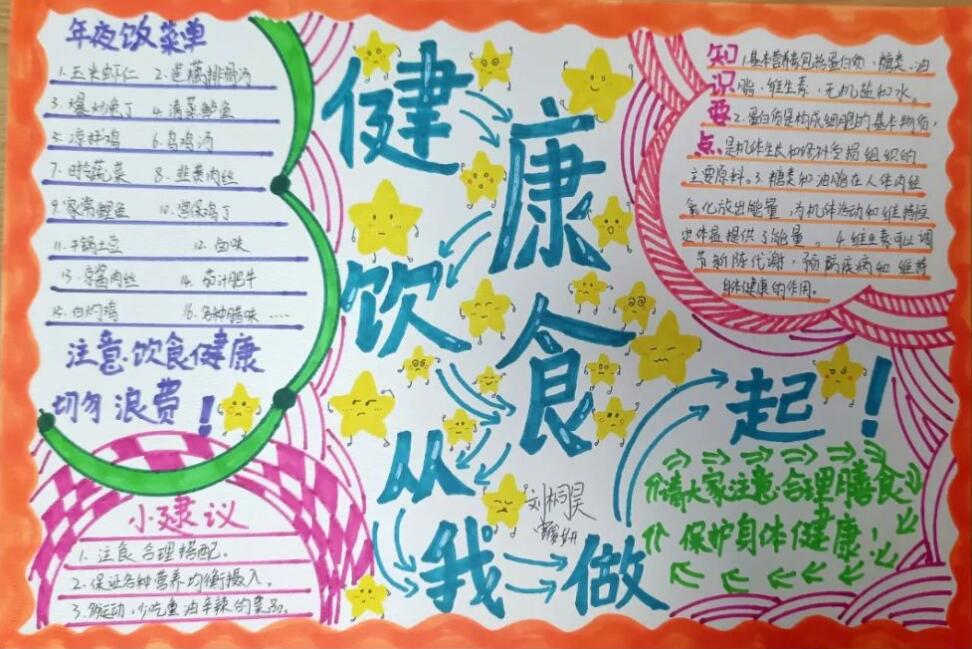 年夜饭菜单
1. 玉米虾仁 2. 莲藕排骨汤
3. 爆炒兔丁 4. 清蒸鲈鱼
5. 凉拌鸡 6. 乌鸡汤
7. 时蔬菜 8. 韭黄肉丝
9. 家常鲤鱼 10. 宫保鸡丁
11. 干锅土豆 12. 卤味
13. 京酱肉丝 14. 茄汁肥牛
15. 白灼鸡 16. 各种腊味 ……
注意饮食健康
切勿浪费！
小建议
1. 注食合理搭配。
2. 保证各种营养均衡摄入。
3. 多运动，少吃重油辛辣的菜品。
健康
饮食
从
我做
起！
刘桐昊
知识要点
1. 基本营养包括蛋白质、糖类、油
脂、维生素、无机盐和水。
2. 蛋白质是构成细胞的基本物质，
是机体生长和修补受损组织的
主要原料。3. 糖类和油脂在人体内经
氧化放出能量，为机体活动和维持恒
定体温提供了能量。4. 维生素可以调
节新陈代谢，预防疾病和维持
身体健康的作用。
请大家注意合理膳食
保护身体健康！